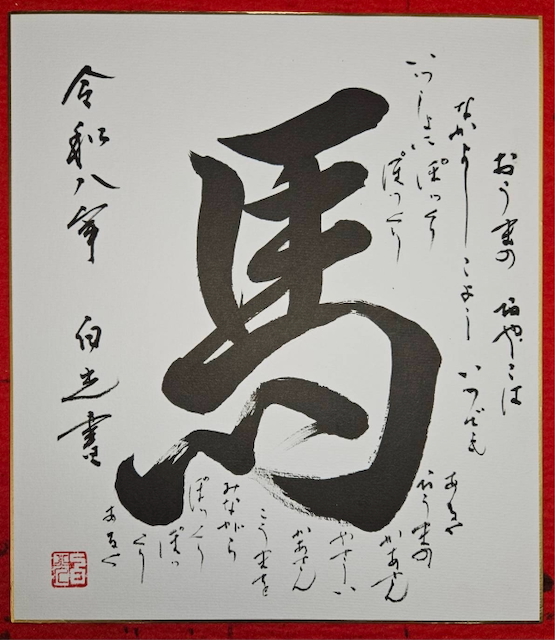 おうまの おやこは
なかよしこよし いつでも
いっしょに ぽっくり
ぽっくり
あるく
おうまの
かあさん
やさしい
かあさん
こうまを
みながら
ぽっくり
ぽっくり
あるく
馬
令和八年 白光書